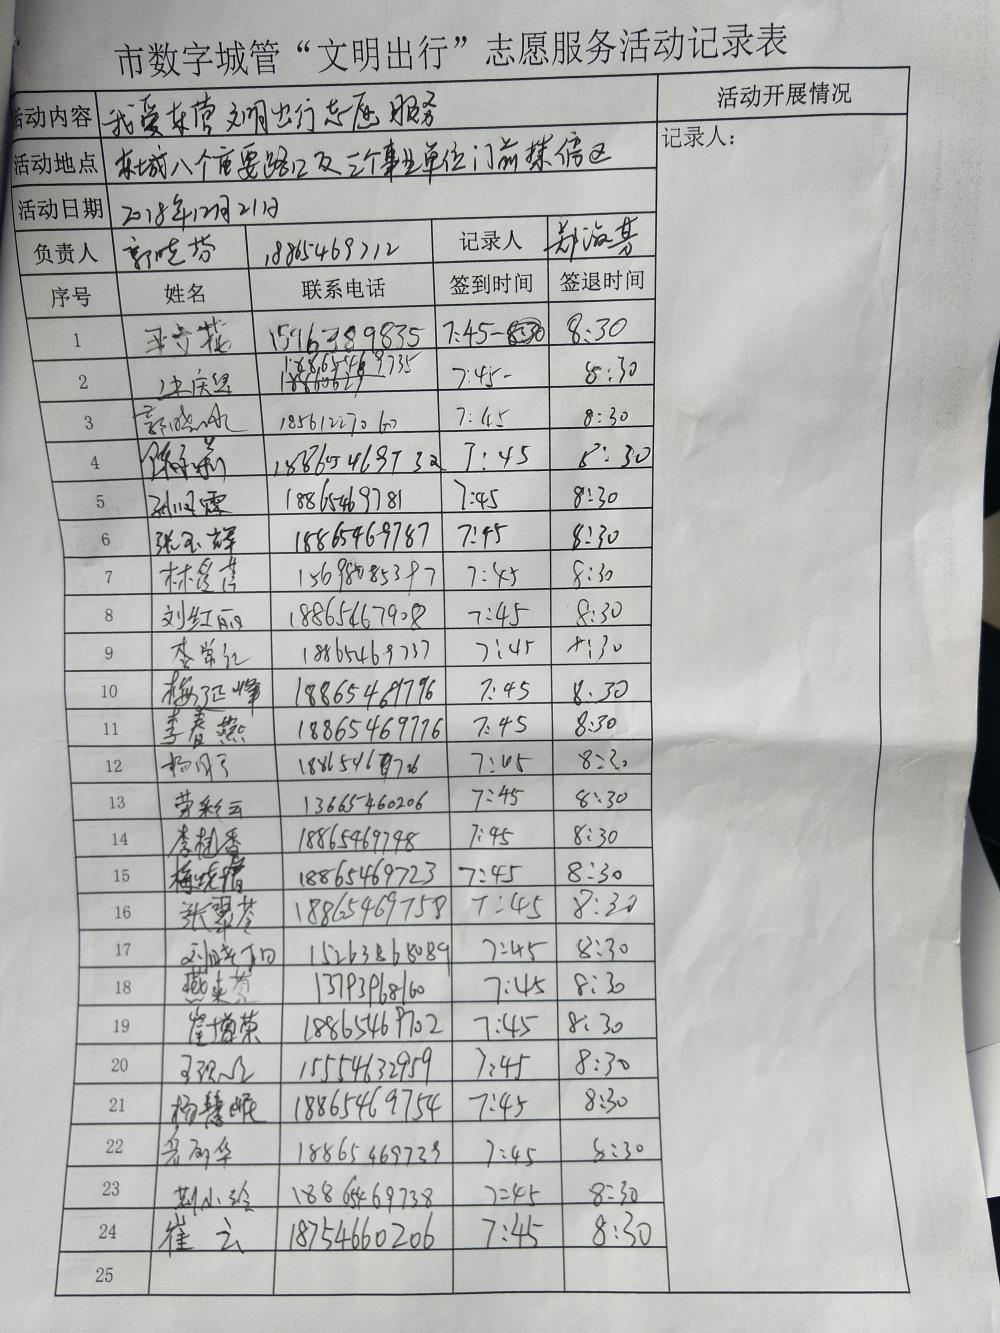 市数字城管“文明出行”志愿服务活动记录表
活动内容 我爱东营文明出行志愿服务 活动开展情况
活动地点 东城八个重要路口及三个事业单位门前禁停区 记录人：
活动日期 2018年12月21日
负责人 郭晓芬 18865469712 记录人 郑海芳
序号 姓名 联系电话 签到时间 签退时间
1 7:45-8:30 8:30
2 18865469735 7:45- 8:30
3 18561227060 7:45 8:30
4 18865469732 7:45 8:30
5 18865469781 7:45 8:30
6 张玉辉 18865469787 7:45 8:30
7 7:45 8:30
8 刘红丽 18865467908 7:45 8:30
9 李常红 18865469737 7:45 8:30
10 18865469796 7:45 8:30
11 李春燕 18865469776 7:45 8:30
12 7:45 8:30
13 劳彩云 13665460206 7:45 8:30
14 李桂香 18865469748 7:45 8:30
15 梅晓蕾 18865469723 7:45 8:30
16 张翠芩 18865469758 7:45 8:30
17 15263868089 7:45 8:30
18 13793968160 7:45 8:30
19 崔增荣 18865469702 7:45 8:30
20 15554632959 7:45 8:30
21 杨慧岷 18865469754 7:45 8:30
22 18865469739 7:45 8:30
23 荆小玲 18865469738 7:45 8:30
24 崔云 18754660206 7:45 8:30
25